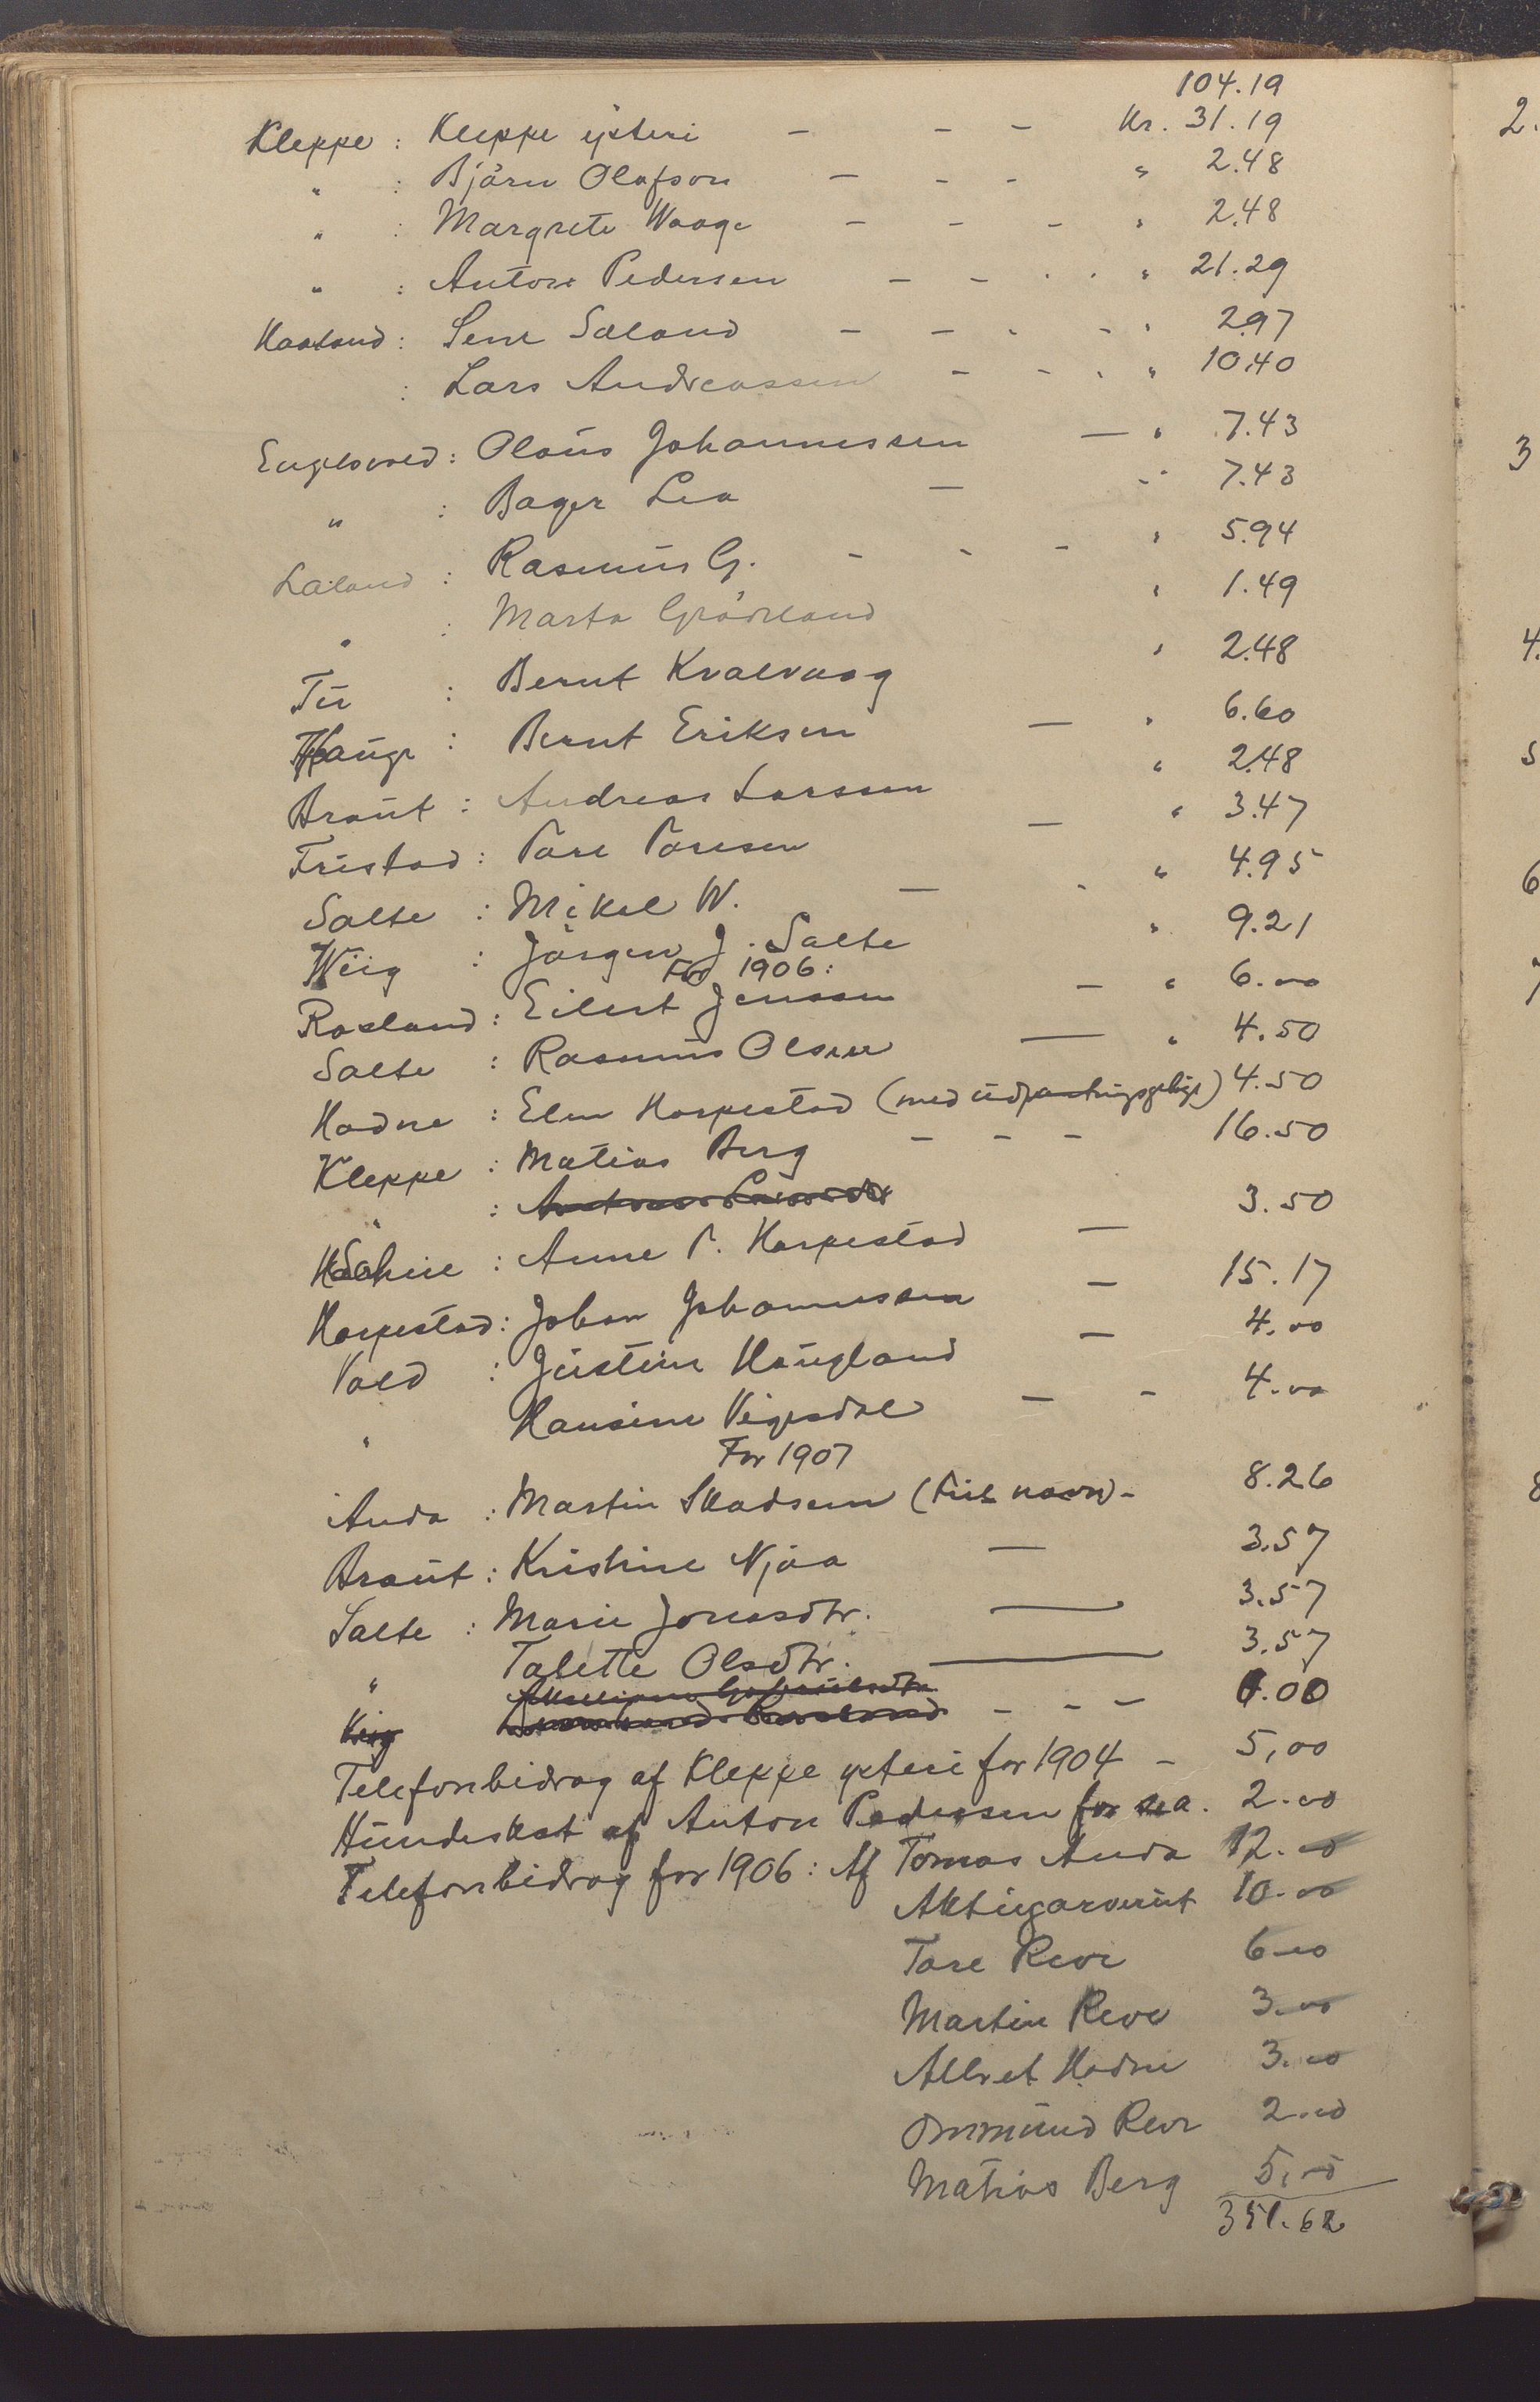 104.19
Kleppe : Kleppe ysteri - - - Kr. 31.19
" : Björn Olafson - - - " 2.48
" : Margrete Waage - - - " 2.48
" : Anton Pedersen - - - - " 21.29
Haaland : Sem Sæland - - - - " 2.97
: Lars Andreassen - - - " 10.40
Engelsvold : Olaus Johannessen - " 7.43
" : Bager Lea - - " 7.43
Laland : Rasmus G. - - - " 5.94
" : Marta Grödeland " 1.49
Tu : Bernt Kvalevaag " 2.48
Hauge : Bernt Eriksen - " 6.60
Braut : Andreas Larssen " 2.48
Fristad : Tore Toresen - " 3.47
Salte : Mikel W. - - " 4.95
Wiig : Jörgen J. Salte " 9.21
For 1906 :
Rosland : Eilert Jenssen - " 6.00
Salte : Rasmus Olsen - " 4.50
Hodne : Elen Horpestad (med udpantningsgebyr) 4.50
Kleppe : Matias Berg - - - 16.50
" :
: Anne T. Horpestad - 3.50
Horpestad : Johan Johannessen - 15.17
Vold : Justine Haugland - 4.00
" Hansine Vigesdal - - 4.00
For 1907
Anda : Martin Skadsem (Fisk navn) - 8.26
Braut : Kristine Njaa - 3.57
Salte : Marie Jonasdtr. - 3.57
" Talette Olsdtr. - 3.57
Viig - - - 0.00
Telefonbidrag af Kleppe ysteri for 1904 - 5,00
Hundeskat af Anton Pedersen for s.a. 2.00
Telefonbidrag for 1906 : Af Tomas Anda 12.00
Aktiegarveriet 10.00
Tore Reve 6.00
Martin Reve 3.00
Albret Hodne 3.00
Ommund Reve 2.00
Matias Berg 5,00
351.62